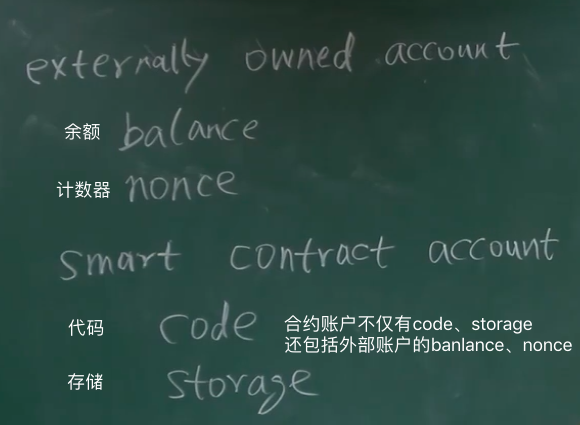 externally owned account
余额 balance
计数器 nonce
smart contract account
代码 code 合约账户不仅有code、storage
还包括外部账户的banlance、nonce
存储 storage